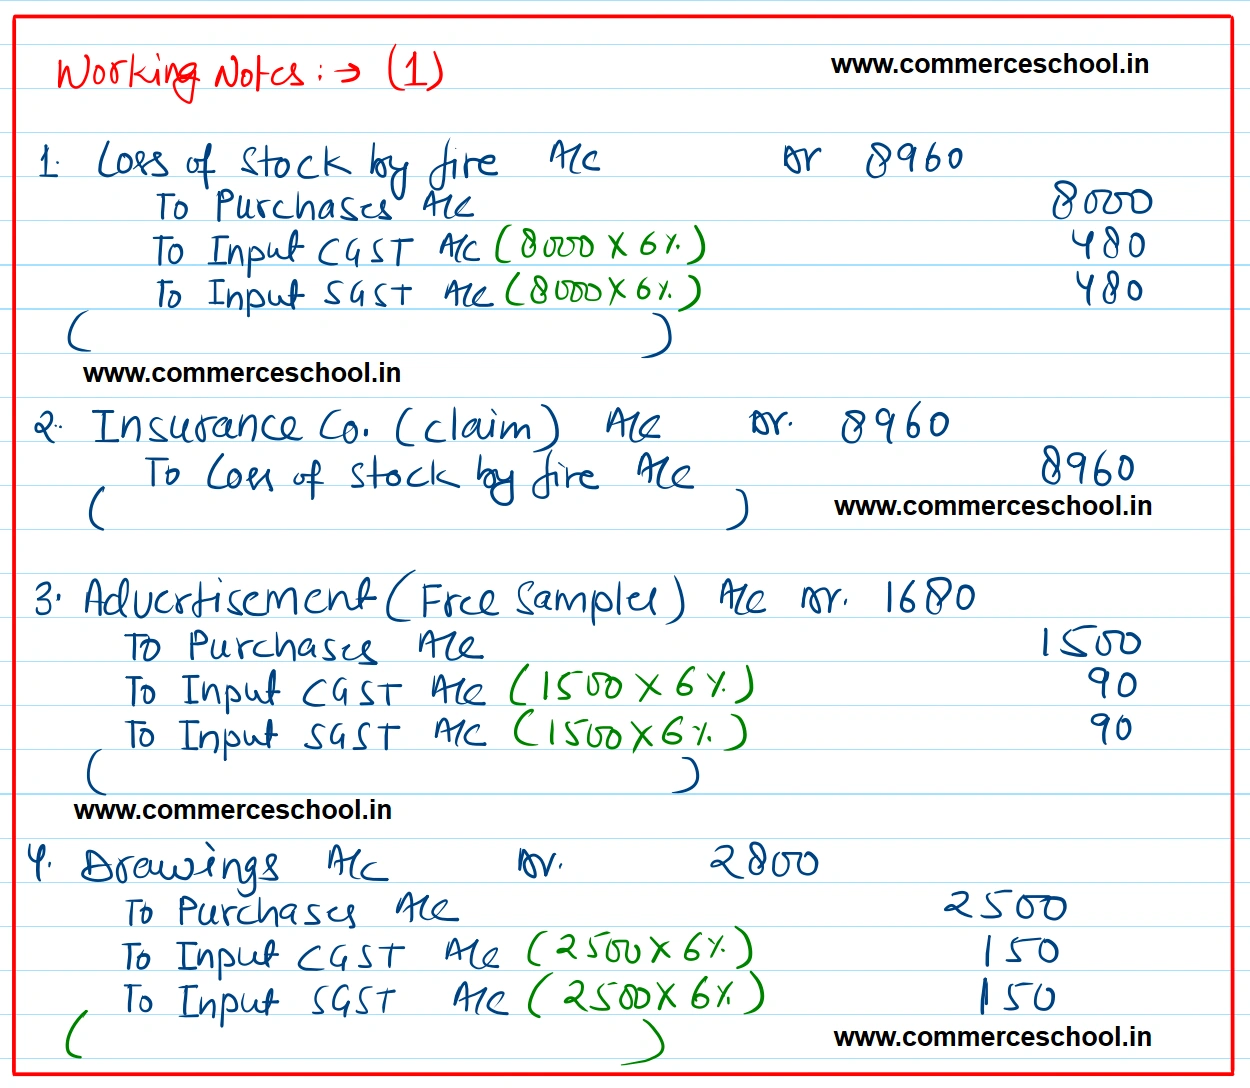 Working Notes :→ (1)
www.commerceschool.in
1. Loss of stock by fire A/c Dr 8960
To Purchases A/c 8000
To Input CGST A/c (8000 X 6%) 480
To Input SGST A/c (8000 X 6%) 480
( )
www.commerceschool.in
2. Insurance Co. (claim) A/c Dr. 8960
To Loss of stock by fire A/c 8960
( )
www.commerceschool.in
3. Advertisement (Free Samples) A/c Dr. 1680
To Purchases A/c 1500
To Input CGST A/c (1500 X 6%) 90
To Input SGST A/c (1500 X 6%) 90
( )
www.commerceschool.in
4. Drawings A/c Dr. 2800
To Purchases A/c 2500
To Input CGST A/c (2500 X 6%) 150
To Input SGST A/c (2500 X 6%) 150
( )
www.commerceschool.in